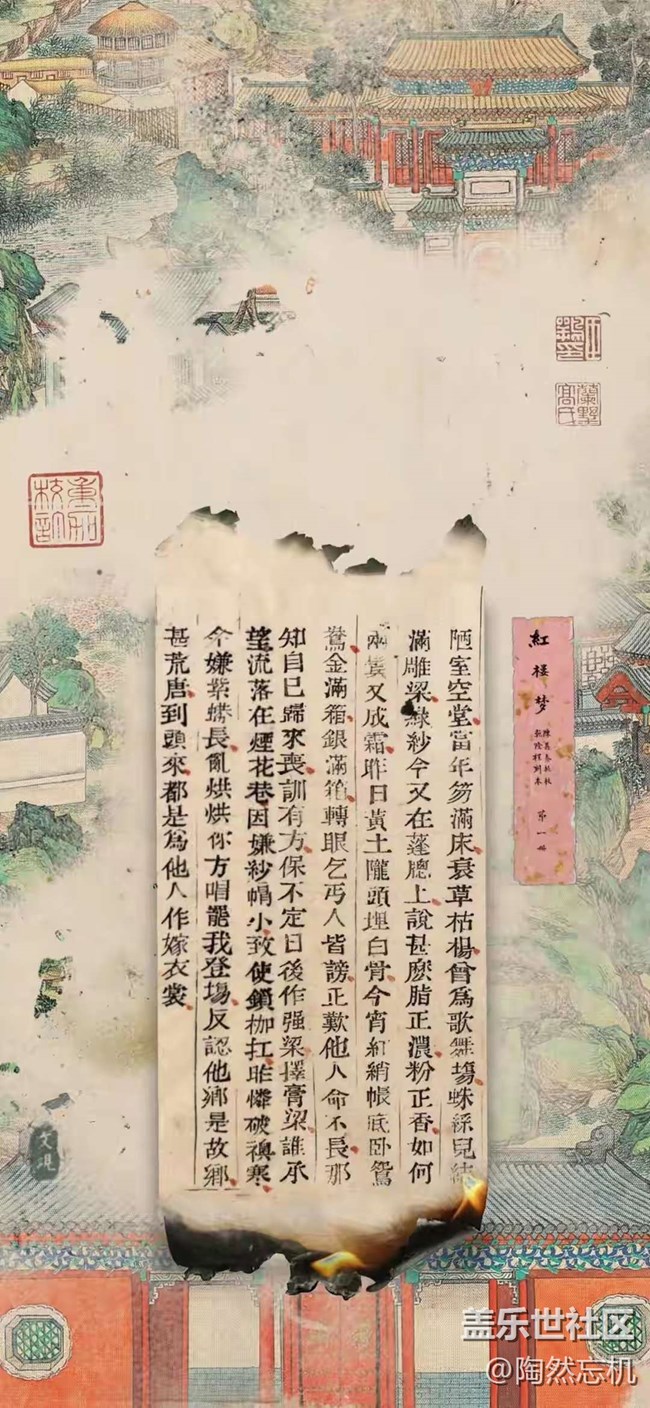 紅楼梦
第一册
陋室空堂當年笏滿床衰草枯楊曾爲歌舞場蛛絲兒結
滿雕梁綠紗今又在蓬牕上說甚麽脂正濃粉正香如何
兩鬢又成霜昨日黃土隴頭埋白骨今宵紅綃帳底卧鴛
鴦金滿箱銀滿箱轉眼乞丐人皆謗正歎他人命不長那
知自己歸來喪訓有方保不定日後作强梁擇膏梁誰承
望流落在煙花巷因嫌紗帽小致使鎖枷扛昨憐破襖寒
今嫌紫蟒長亂烘烘你方唱罷我登場反認他鄉是故鄉
甚荒唐到頭來都是爲他人作嫁衣裳
盖乐世社区
@陶然忘机